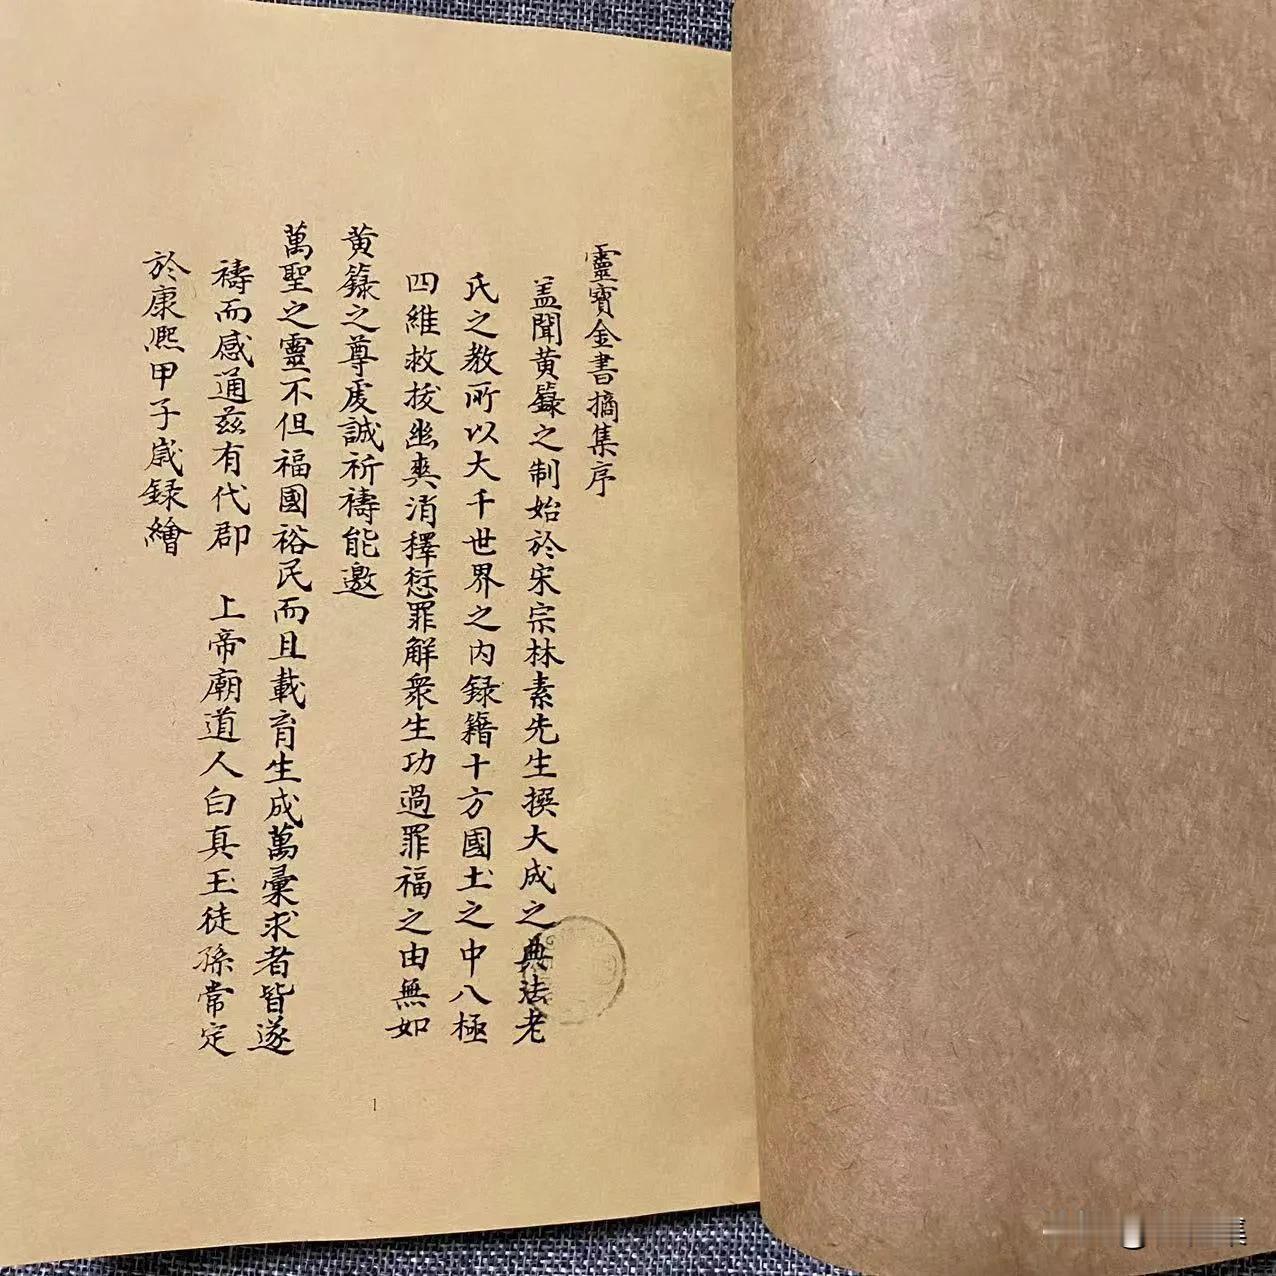 靈寶金書摘集序
盖聞黄籙之制始於宋宗林素先生撰大成之典法老
氏之教所以大千世界之内録籍十方國土之中八極
四維救拔幽爽消釋愆罪解衆生功過罪福之由無如
黄籙之尊虔誠祈禱能邀
萬聖之靈不但福國裕民而且載育生成萬彙求者皆遂
禱而感通兹有代郡　上帝廟道人白真玉徒孫常定
於康熙甲子歲録繪
1